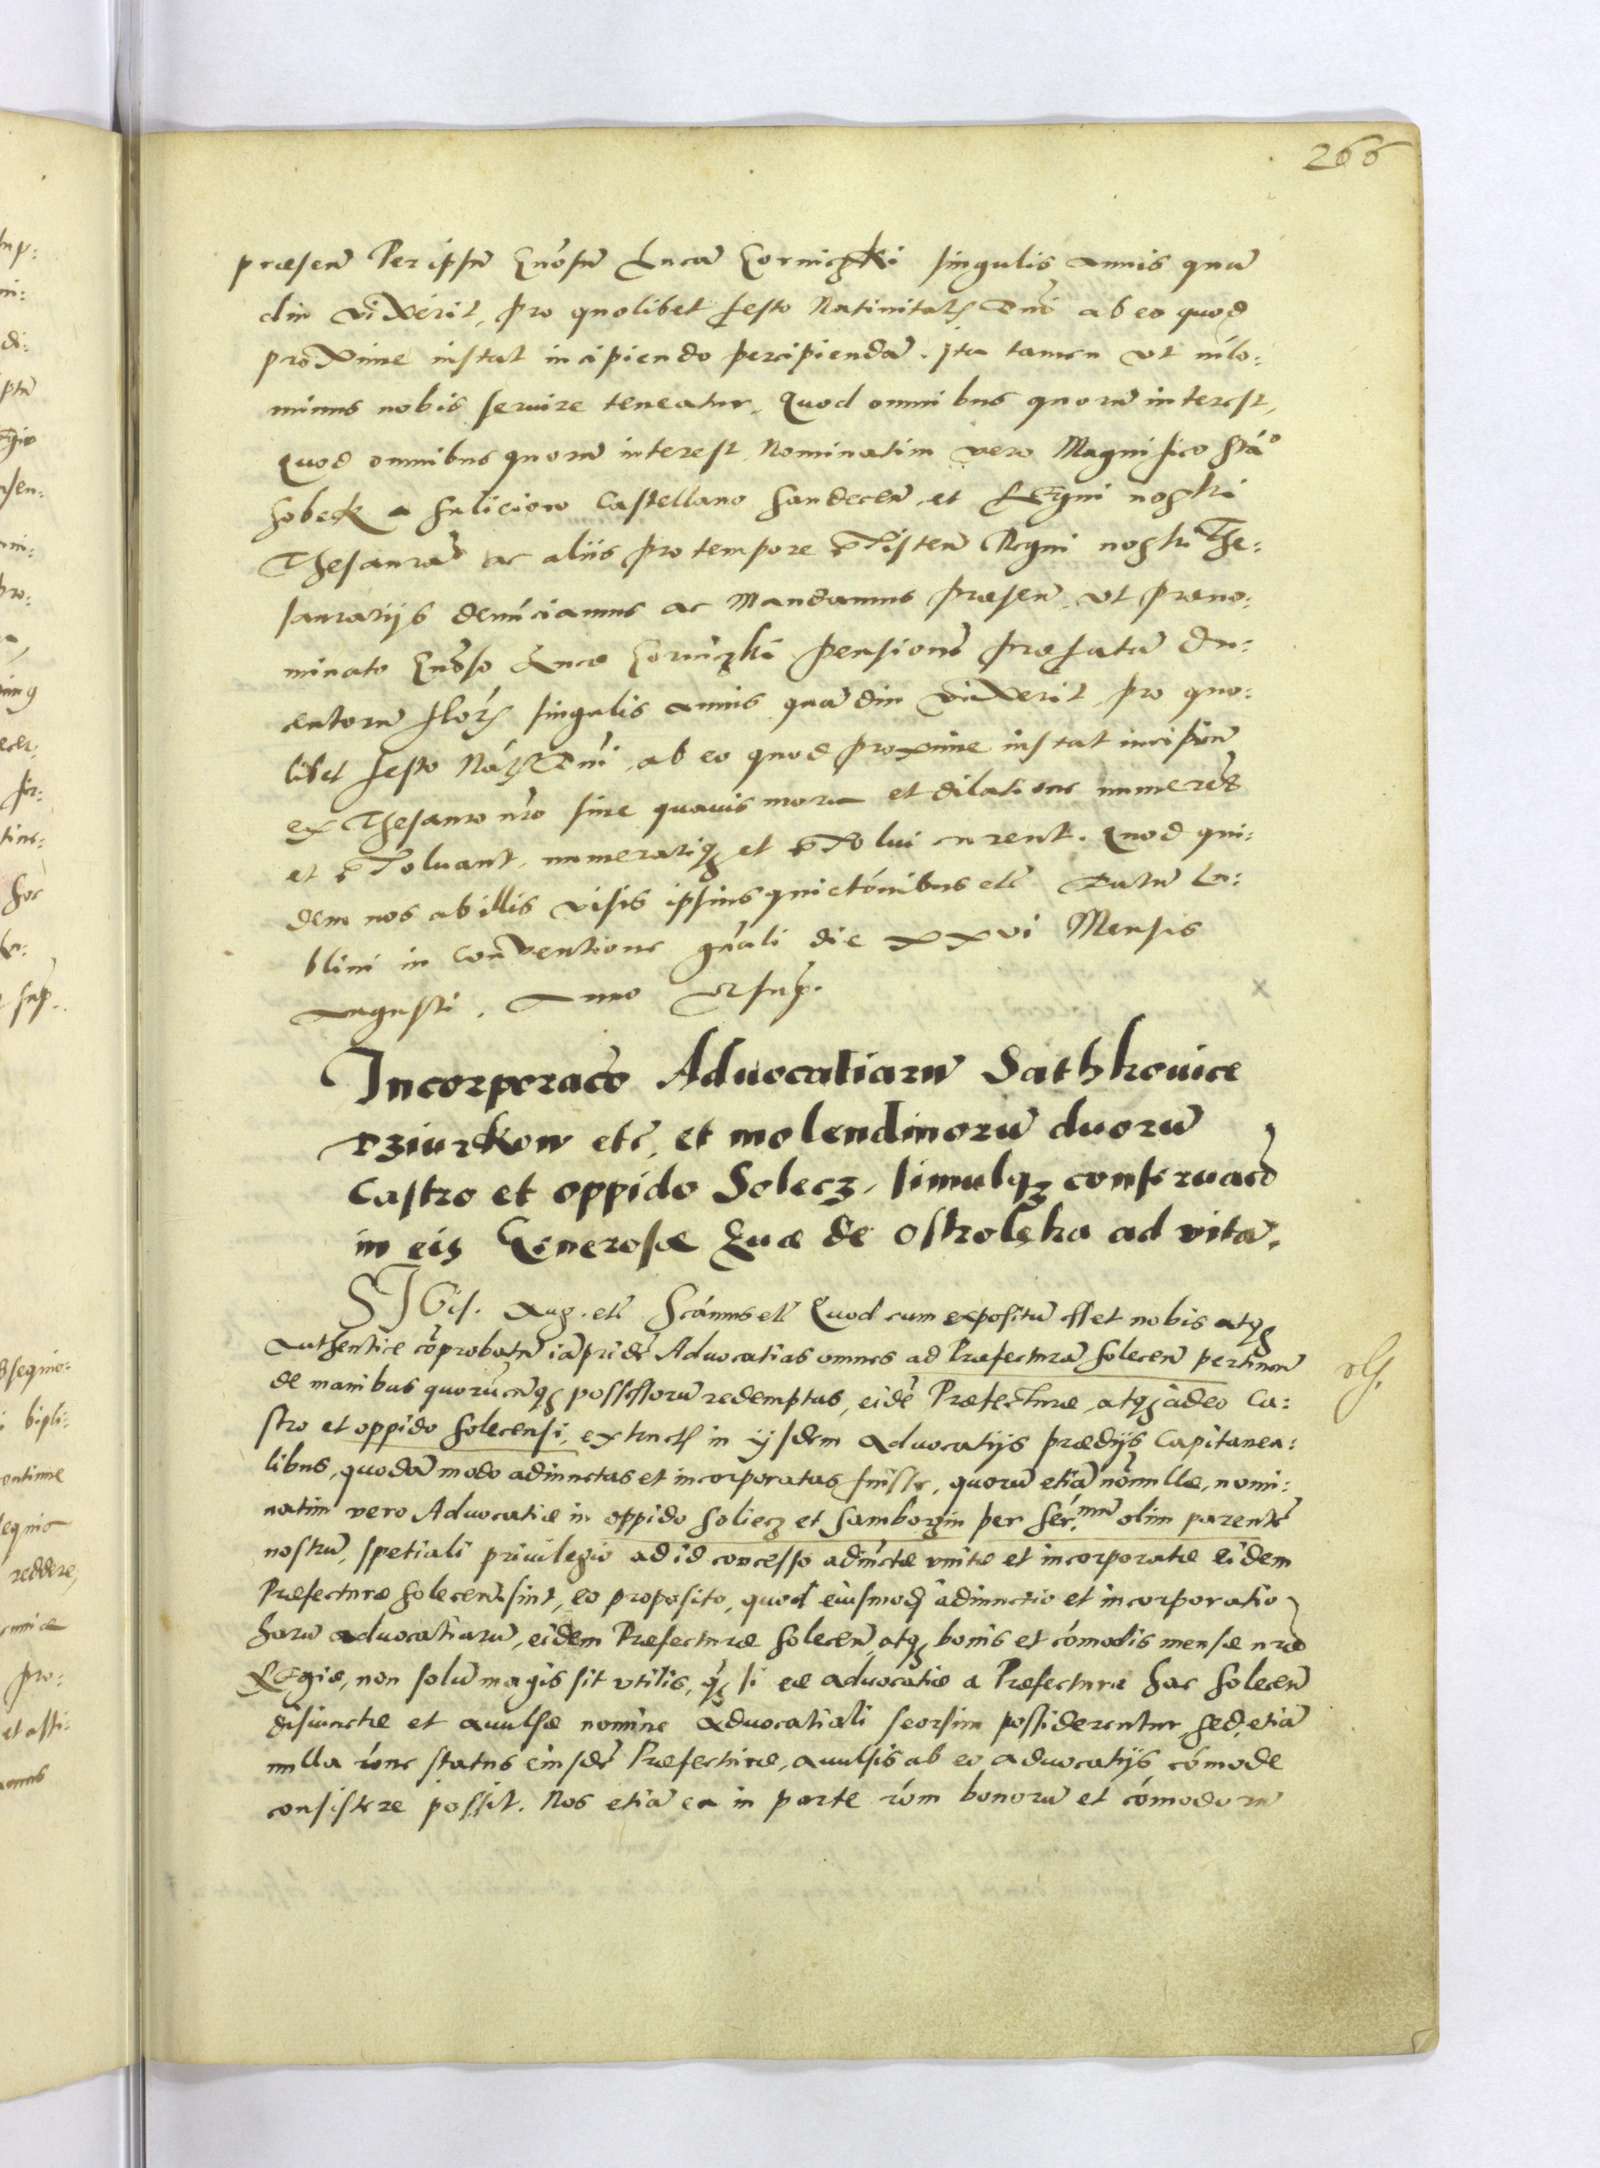 266
præsen̄ Per ipsu̅ Gn̅osu̅ Luca̅ Gorniczki singulis annis qua̅
diu vixerit, pro quolibet festo Natiuitatis Dn̅i ab eo quod
proxime instat incipiendo percipienda̅. Ita tamen vt nilo:
minus nobis seruire teneatur. Quod omnibus quoru̅ interest,
Quod omnibus quoru̅ interest, Nominatim vero Magnifico Sta°
Sobek a Suliciow Castellano Sandecen̄ et Regni nostri
Thesaurar̄ ac aliis pro tempore existen̄ Regni nostri The:
saurarijs denu̅ciamus ac Mandamus præsen̄, vt præno:
minato Gn̅oso Lucæ Gorniczki pensione̅ præfata̅ du:
centoru̅ flor̄ singulis annis qua̅diu vixerit pro quo:
libet festo Nat̄is Dn̅i, ab eo quod proxime instat incipien̄
ex Thesauro n̅ro sine quauis mora et dilatione numeret
et exoluant, numerariq̨ et exolui curent. Quod qui:
dem nos ab illis visis ipsius quietȏnibus etc̄ Datu̅ Lu:
blini in Conventione gn̅ali die xxvi Mensis
Augusti. Anno vt sup̄.
Incorporac̄o Advocatiaru̅ Sathkovice
Dziurkow etc̄, et molendinoru̅ duoru̅
Castro et oppido Solecz, simulq̨ conseruac̄o
in eis Generosæ Euæ de Ostrolęka ad vita̅.
SIGis. Aug. etc̄ Sca̅mus etc̄ Quod cum expositu̅ esset nobis atq̨
Authentice co̅probatu̅ ia̅pride̅ Advocatias omnes ad Præfectura̅ Solecen̄ pertinen̄
de manibus quoru̅cu̅q̨ possessoru̅ redemptas, eide̅ Præfecturæ, atq̨ adeo Ca:
stro et oppido Solecensi, extructis in ijsdem Advocatijs prædijs Capitanea:
libus, quoda̅modo adiunctas et incorporatas fuisse, quoru̅ etia̅ no̅nullæ, nomi:
natim vero Advocatiæ in oppido Soliecz et Samborzin per Ser.mu̅ olim parente̅
nostru̅, spetiali priuilegio ad id concesso adiu̅ctæ vnitæ et incorporatæ eidem
Præfecturæ Solecen̄ sint, eo proposito, quod eiusmodi adiunctio et incorporatio
haru̅ advocatiaru̅, eidem Præfecturæ Solecen̄, atq̨ bonis et co̅modis mensæ n̅ræ
Regiæ, non solu̅ magis sit vtilis, q̨ si eæ advocatiæ a Præfectura hac Solecen̄
disiunctæ et auulsæ nomine advocatiali seorsim possiderentur, sed etia̅
nulla ro̅ne status eiusde̅ Præfecturæ, auulsis ab eo advocatijs, co̅mode
consistere possit. Nos etia̅ ea in parte ro̅m bonoru̅ et co̅modoru̅